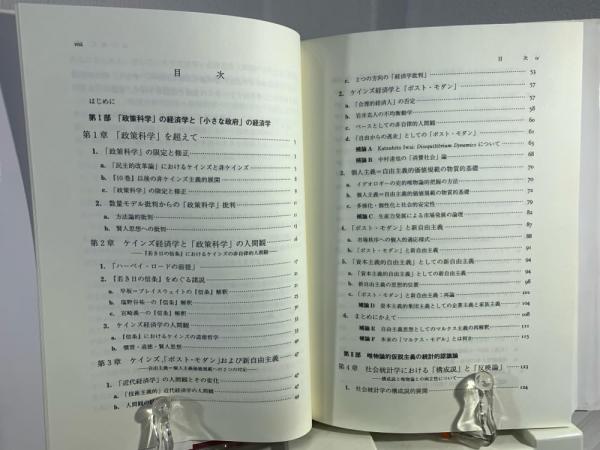 viii
目　次
はじめに
第I部　「政策科学」の経済学と「小さな政府」の経済学
第1章　「政策科学」を超えて
1. 「政策科学」の限定と修正
a. 「民主的改革論」におけるケインズと非ケインズ
c. 「政策科学」の限定と修正
2. 数量モデル批判からの「政策科学」批判
a. 方法論的批判
b. 賢人思想への批判
第2章　ケインズ経済学と「政策科学」の人間観
——『若き日の信条』におけるケインズの非自律的人間観
1. 「ハーベイ・ロードの前提」
2. 『若き日の信条』をめぐる諸説
a. 早坂=ブレイスウェイトの『信条』解釈
b. 塩野谷祐一の『信条』解釈
c. 宮崎義一の『信条』解釈
3. ケインズ経済学の人間観
a. 『信条』におけるケインズの道徳哲学
b. 慣習・道徳・賢人思想
第3章　ケインズ,「ポスト・モダン」および新自由主義
1. 「近代経済学」の人間観とその変化
a. 「技術主義的」近代経済学の人間観
b. 人間観の
目　次　ix
c. 2つの方向の「経済学批判」 53
2. ケインズ経済学と「ポスト・モダン」 57
a. 「合理的経済人」の否定 57
b. 岩井克人の不均衡動学 58
c. ベースとしての非自律的人間観 60
d. 「自由からの逃走」としての「ポスト・モダン」
補論A　Katsuhito Iwai: Disequilibrium Dynamics について
補論B　中村達也の「消費社会」論 68
3. 個人主義=自由主義的価値規範の物質的基礎 70
a. イデオロギーの史的唯物論的把握の方法
b. 個人主義=自由主義的価値規範の物質的基礎
c. 多様化・個性化と社会的安定性
補論C　生産力発展による市場発展の論理
4. 「ポスト・モダン」と新自由主義
a. 市場秩序への個人的適応様式
b. 「ポスト・モダン」と新自由主義
5. 「資本主義的自由主義」としての新自由主義 94
a. 「資本主義的自由主義」としての新自由主義
b. 新自由主義の思想的位置
c. 「ポスト・モダン」と新自由主義：再論
補論D　資本主義的集団主義としての企業主義と家族主義
6. まとめにかえて
補論E　自由主義思想としてのマルクス主義の再解釈
補論F　本来の「マルクス・モデル」とは何か
第II部　唯物論的仮説主義の統計的認識論
第4章　社会統計学における「構成説」と「反映論」 123
——構成説と唯物論との両立性について
1. 社会統計学の構成説的展開 124